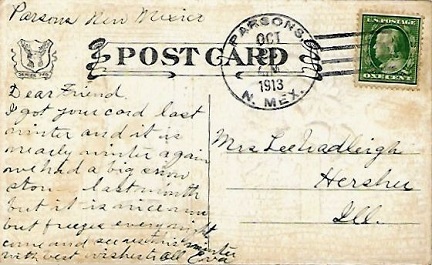 Parsons New Mexico
POST CARD
PARSONS
OCT
1913
N. MEX.
U.S. POSTAGE
ONE CENT
Dear Friend
I got your card last
winter and it is
nearly winter again
we had a big snow
storm last month
but it is nice now
but freezes every night
come and see us
with best wishes to all Eva
Mrs Lee Wadleigh
Hershu
Ill.